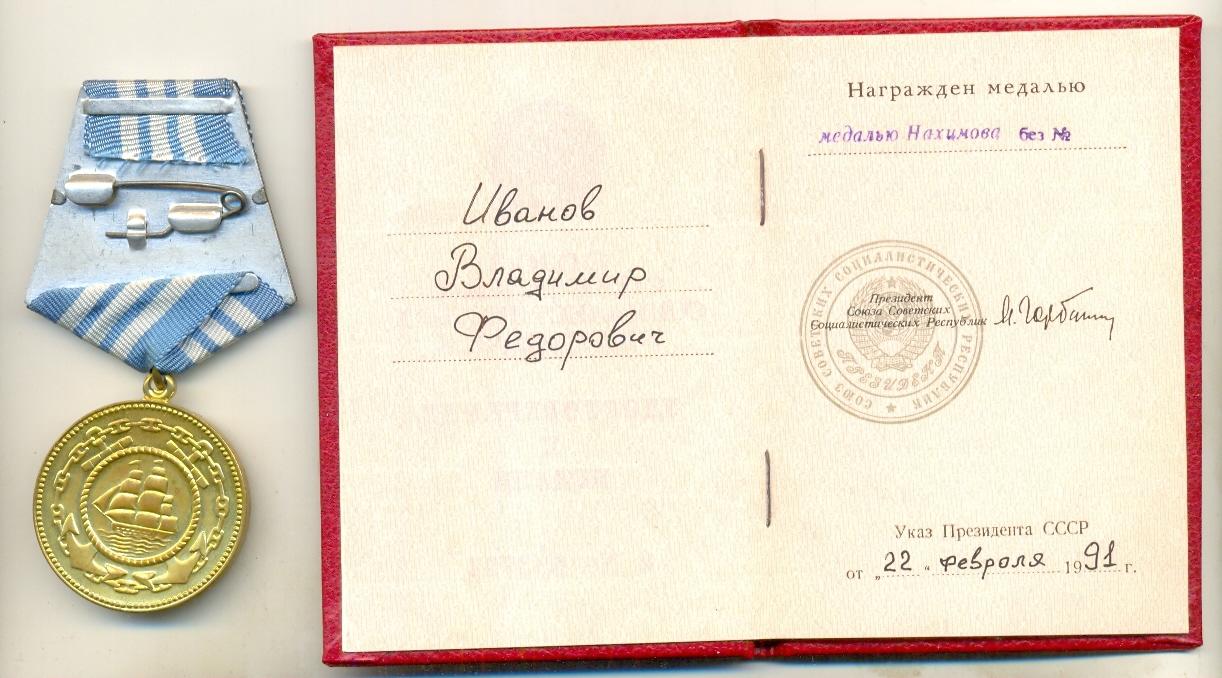 Иванов
Владимир
Федорович
Награжден медалью
медалью Нахимова без №
СОЮЗ СОВЕТСКИХ СОЦИАЛИСТИЧЕСКИХ РЕСПУБЛИК
ПРЕЗИДЕНТ
Президент
Союза Советских
Социалистических Республик
М. Горбачев
Указ Президента СССР
от „22“ февраля 1991 г.